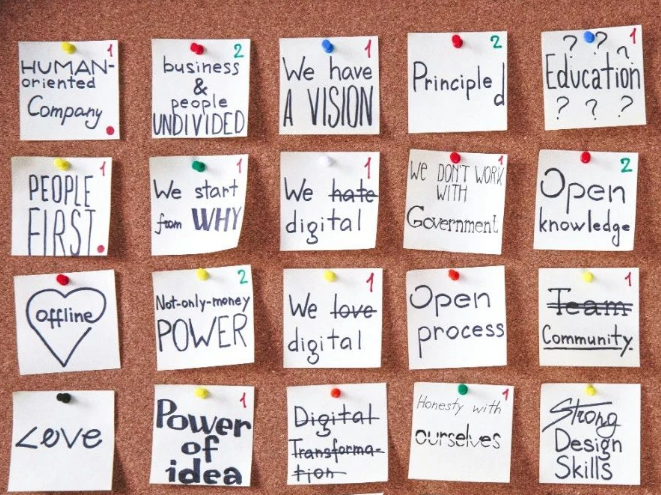 1
HUMAN-
oriented
Company
2
business
&
people
UNDIVIDED
1
We have
A VISION
2
Principle
d
1
? ? ?
Education
? ? ?
1
PEOPLE
FIRST
1
We start
from WHY
1
We hate
digital
1
We DON'T WORK
WITH
Government
2
Open
knowledge
offline
2
Not-only-money
POWER
1
We love
digital
Open
process
1
Team
Community.
Love
1
Power
of
idea
Digital
Transforma-
tion
1
Honesty with
ourselves
Strong
Design
Skills